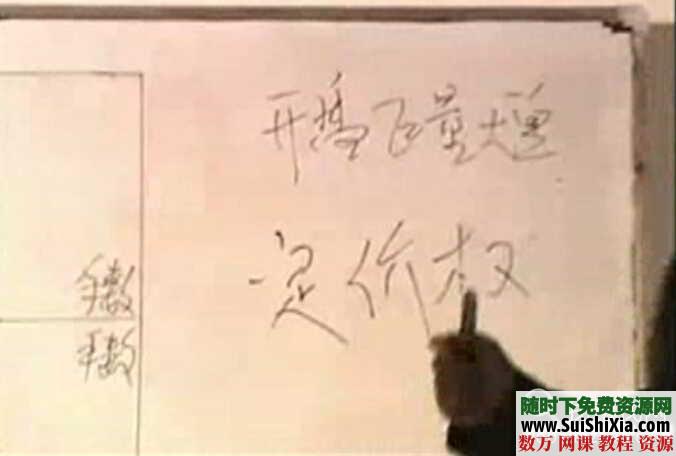 开盘 量大
定价权
手数
手数
随时下免费资源网
www.SuiShiXia.com
数万 网课 教程 资源